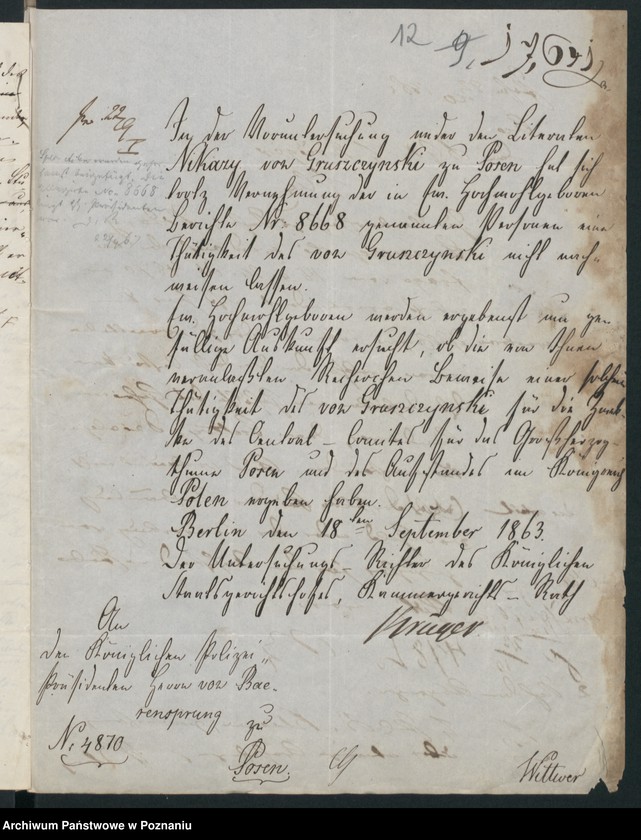 12 9.
pr 22/9
In der Voruntersuchung wider den Literaten
Nikary von Gruszczynski zu Posen hat sich
trotz Vernehmung der in Ew. Hochwohlgeboren
Berichte Nr. 8668 genannten Personen eine
Thätigkeit des von Gruszczynski nicht nach-
weisen lassen.
Ew. Hochwohlgeboren werden ergebenst um ge-
fällige Auskunft ersucht, ob die von Ihnen
veranlaßten Recherchen Beweise einer solchen
Thätigkeit des von Gruszczynski für die Zwec-
ke des Central-Comités für das Großherzog-
thum Posen und des Aufstandes im Königreich
Polen ergeben haben.
Berlin den 18ten September 1863.
Der Untersuchungs-Richter des Königlichen
Staatsgerichtshofes, Kammergerichts-Rath
Krüger.
An
den Königlichen Polizei-
Präsidenten Herrn von Bae-
rensprung
zu
Posen.
N. 4870
Wittwer
Archiwum Państwowe w Poznaniu